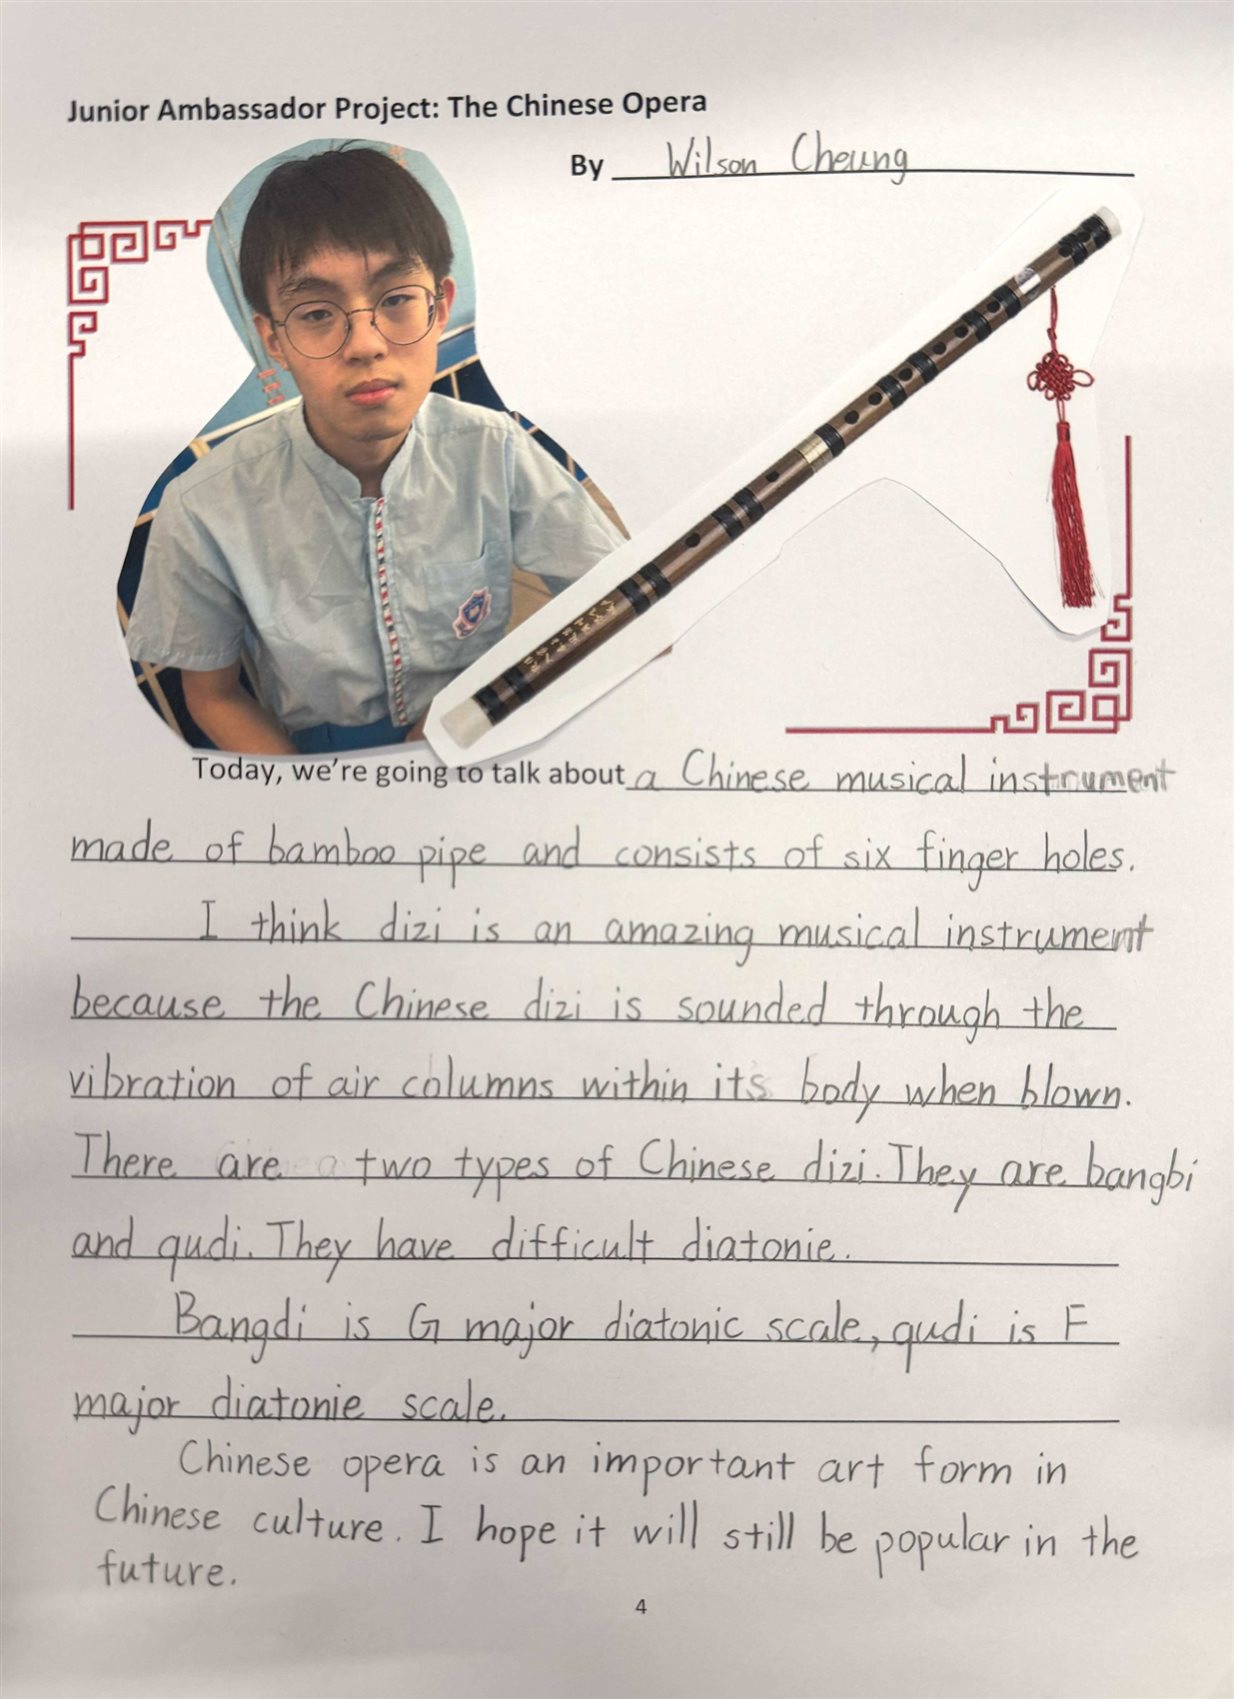 Junior Ambassador Project: The Chinese Opera
By Wilson Cheung
Today, we're going to talk about a Chinese musical instrument
made of bamboo pipe and consists of six finger holes.
I think dizi is an amazing musical instrument
because the Chinese dizi is sounded through the
vibration of air columns within its body when blown.
There are two types of Chinese dizi. They are bangbi
and qudi. They have difficult diatonie.
Bangdi is G major diatonic scale, qudi is F
major diatonie scale.
Chinese opera is an important art form in
Chinese culture. I hope it will still be popular in the
future.
4